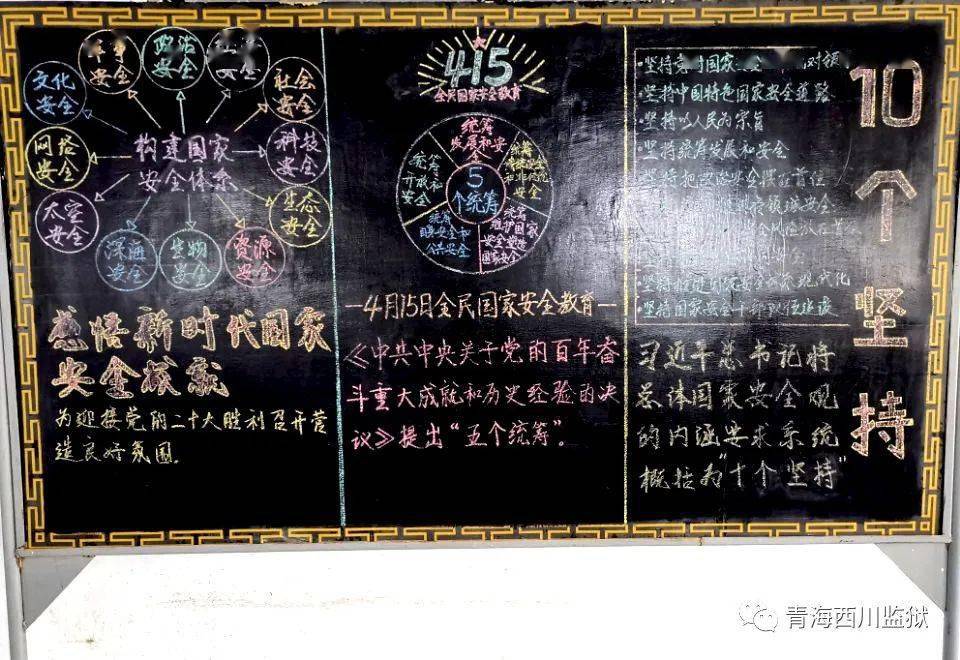 军事
安全
政治
安全
安全
文化
安全
社会
安全
网络
安全
科技
安全
构建国家
安全体系
太空
安全
生态
安全
深海
安全
生物
安全
资源
安全
感悟新时代国家
安全成就
为迎接党的二十大胜利召开营
造良好氛围。
415
全民国家安全教育
5
个统筹
统筹
发展和安
全
统筹
开放和
安全
统筹
和非传统
安全
统筹
国土安全和
公共安全
统筹
维护国家
安全塑造
国家安全
—4月15日全民国家安全教育—
《中共中央关于党的百年奋
斗重大成就和历史经验的决
议》提出“五个统筹”。
·坚持党对国家
·坚持中国特色国家安全道路
·坚持以人民为宗旨
·坚持统筹发展和安全
坚持把政治安全摆在首位
·坚持推进国家安全体系现代化
·坚持国家安全干部队伍建设
习近平总书记将
总体国家安全观
的内涵要求系统
概括为“十个坚持”
10个坚持
青海西川监狱